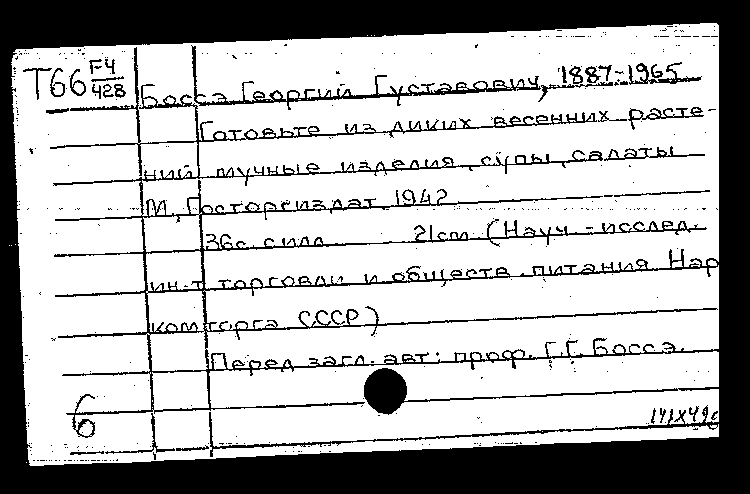 Т66 F4/428
Боссэ Георгий Густавович, 1887-1965
Готовьте из диких весенних расте-
ний мучные изделия, супы, салаты
М, Госторгиздат 1942
36с. с илл 21cm (Науч - исслед.
ин-т торговли и обществ. питания Нар
комторга СССР)
Перед загл. авт: проф. Г.Г. Боссэ.
6